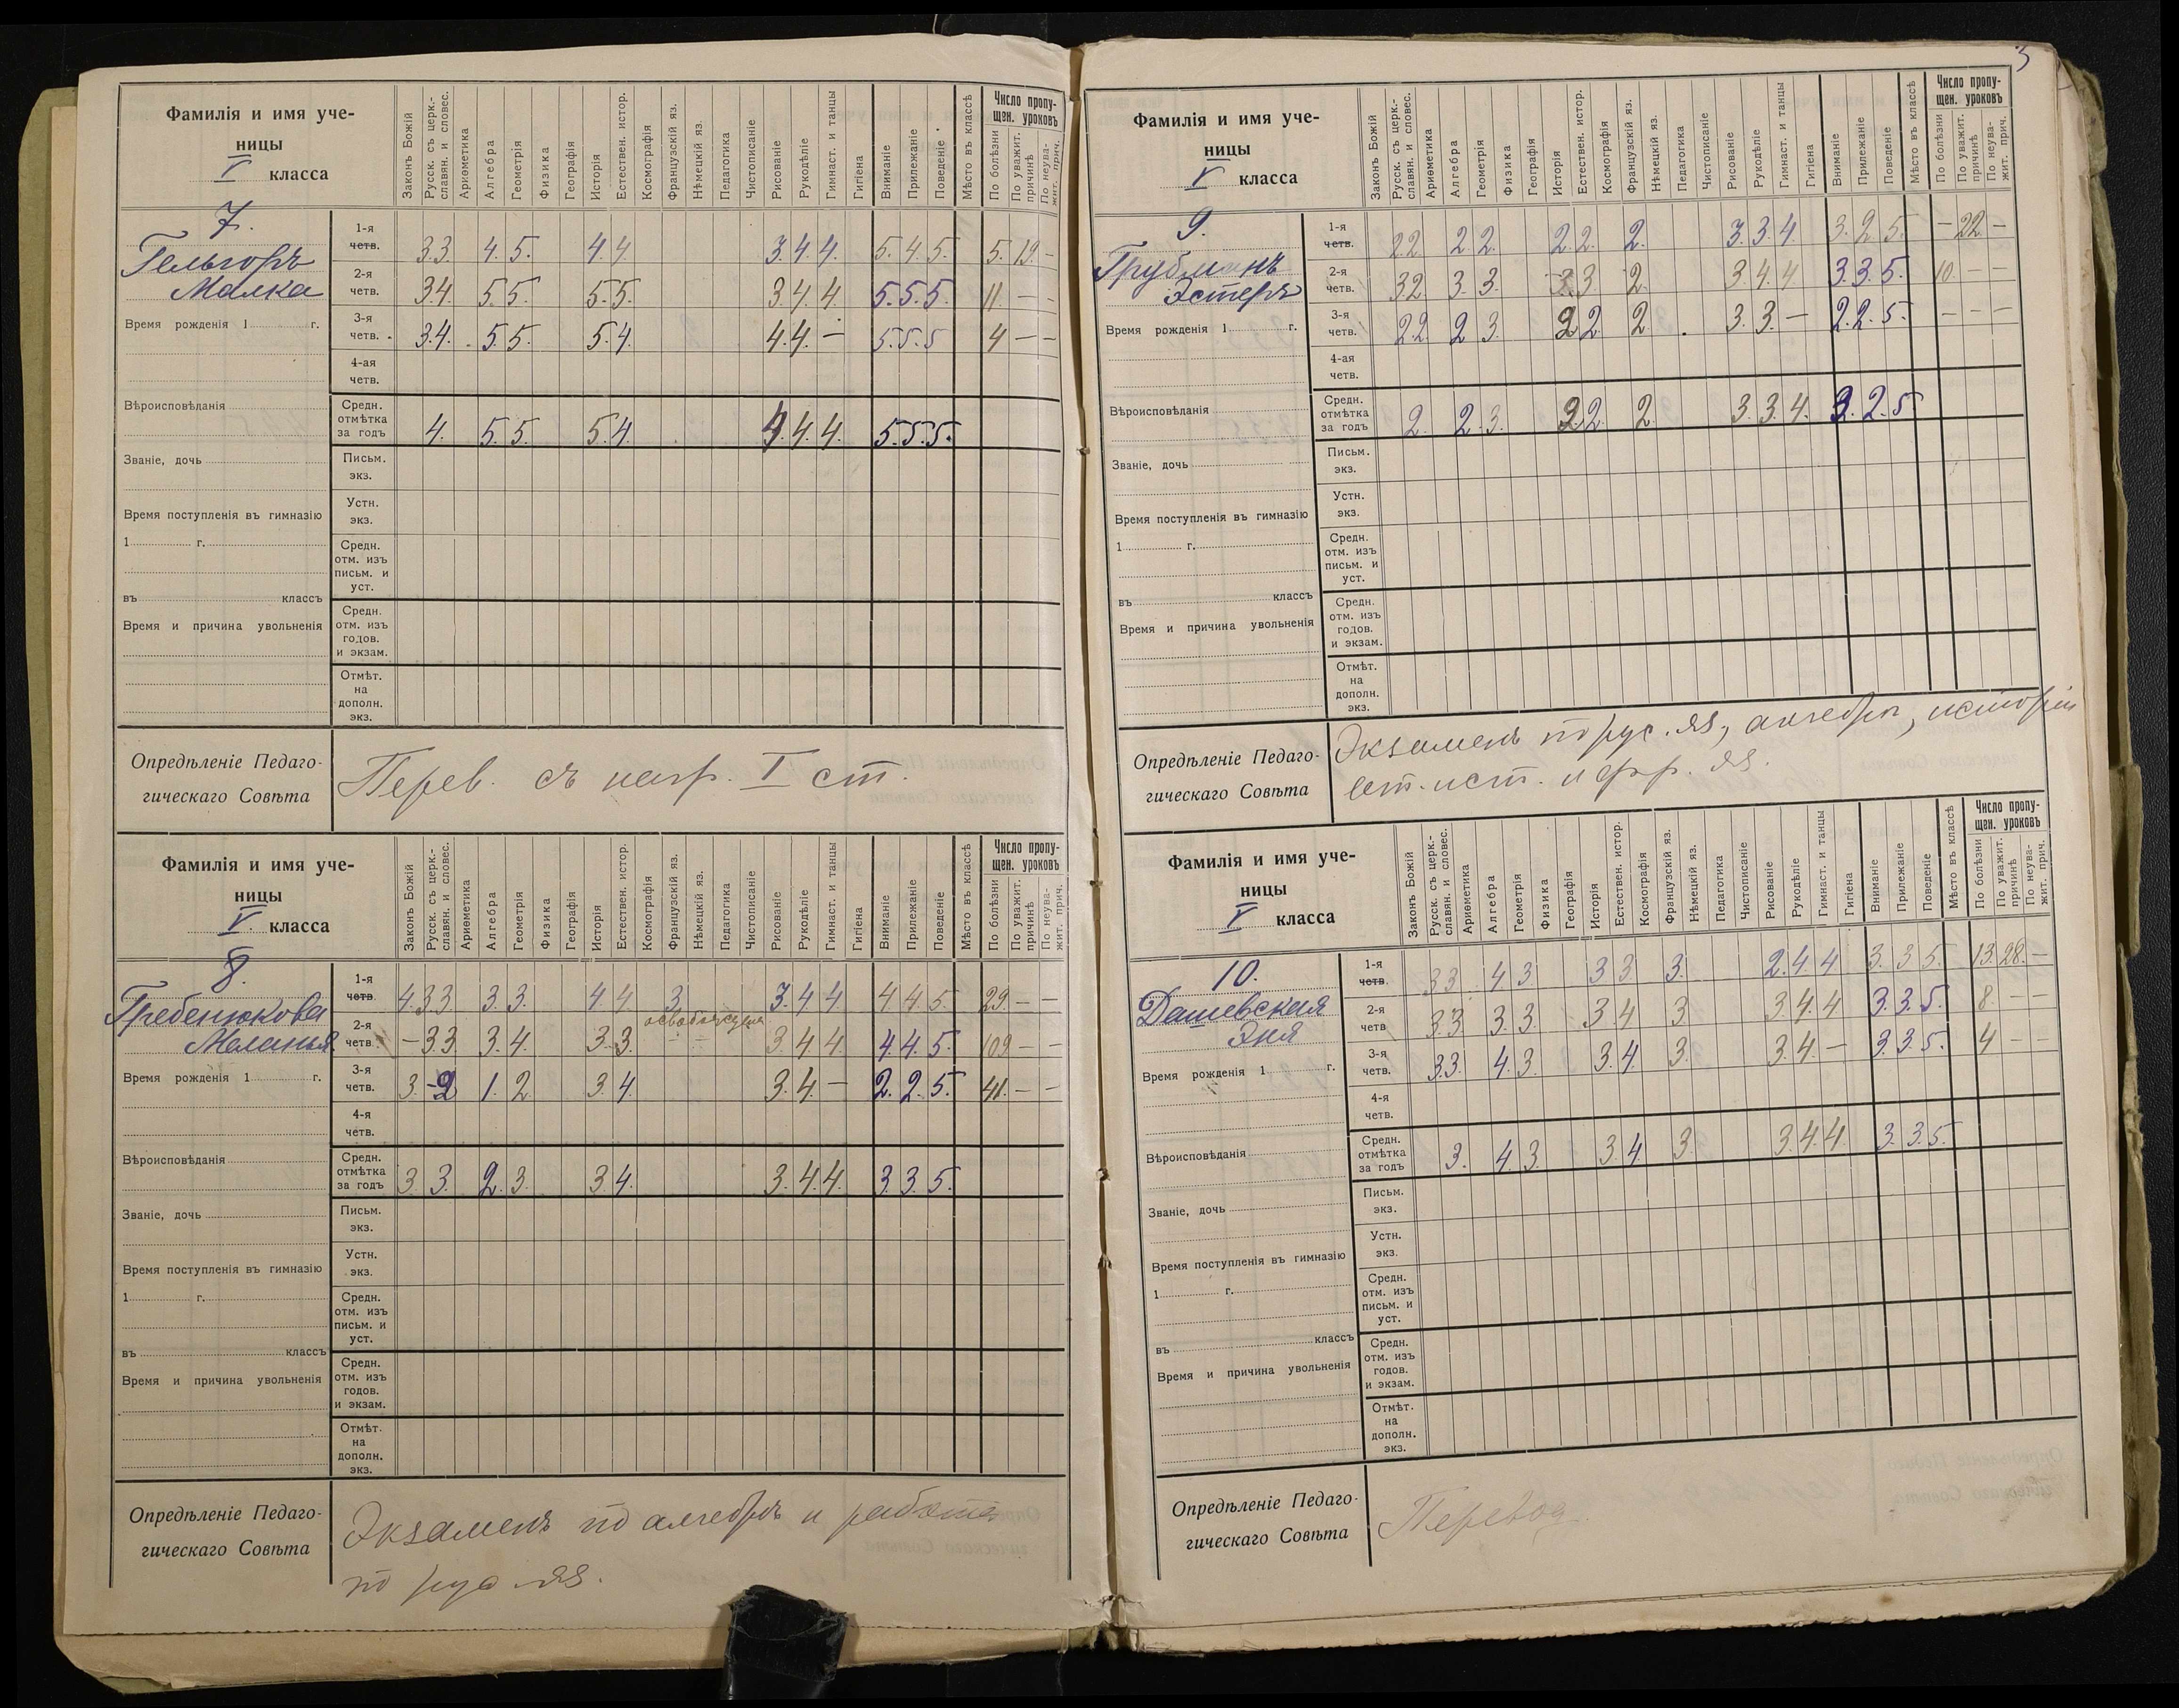 3
Фамилія и имя уче-
ницы
V класса
Законъ Божій
Русск. съ церк.-
славян. и словес.
Ариѳметика
Алгебра
Геометрія
Физика
Географія
Исторія
Естествен. истор.
Космографія
Французскій яз.
Нѣмецкій яз.
Педагогика
Чистописаніе
Рисованіе
Рукодѣліе
Гимнаст. и танцы
Гигіена
Вниманіе
Прилежаніе
Поведеніе
Мѣсто въ классѣ
Число пропу-
щен. уроковъ
По болѣзни
По уважит.
причинѣ
По неува-
жит. прич.
7.
Малка
1-я
четв. 3 3. 4. 5. 4 4 3. 4. 4. 5. 4. 5 5. 19. -
2-я
четв. 3 4. 5. 5. 5. 5. 3. 4. 4. 5. 5. 5. 11. - -
3-я
четв. 3 4. 5. 5. 5. 4. 4. 4. - 5. 5. 5 4 - -
4-ая
четв.
Время рожденія 1 г.
Вѣроисповѣданія
Средн.
отмѣтка
за годъ 4. 5. 5. 5. 4. 4. 4. 4. 5. 5. 5.
Званіе, дочь
Письм.
экз.
Устн.
экз.
Время поступленія въ гимназію
1 г.
Средн.
отм. изъ
письм. и
уст.
въ классъ
Время и причина увольненія
Средн.
отм. изъ
годов.
и экзам.
Отмѣт.
на
дополн.
экз.
Опредѣленіе Педаго-
гическаго Совѣта
Перев. съ нагр. I ст.
Фамилія и имя уче-
ницы
V. класса
Законъ Божій
Русск. съ церк.-
славян. и словес.
Ариѳметика
Алгебра
Геометрія
Физика
Географія
Исторія
Естествен. истор.
Космографія
Французскій яз.
Нѣмецкій яз.
Педагогика
Чистописаніе
Рисованіе
Рукодѣліе
Гимнаст. и танцы
Гигіена
Вниманіе
Прилежаніе
Поведеніе
Мѣсто въ классѣ
Число пропу-
щен. уроковъ
По болѣзни
По уважит.
причинѣ
По неува-
жит. прич.
8.
Гребенюкова
Меланья
1-я
четв. 4. 3 3 3. 3. 4 4 3. 3. 4 4 4 4 5 29. - -
освобождена
2-я
четв. - 3 3 3. 4. 3. 3. 3. 4 4 4. 4. 5. 109 - -
3-я
четв. 3. - 2 1. 2. 3. 4. 3. 4. - 2. 2. 5. 41. - -
4-я
четв.
Время рожденія 1 г.
Вѣроисповѣданія
Средн.
отмѣтка
за годъ 3. 3. 2. 3. 3 4. 3. 4. 4. 3. 3. 5.
Званіе, дочь
Письм.
экз.
Устн.
экз.
Время поступленія въ гимназію
1 г.
Средн.
отм. изъ
письм. и
уст.
въ классъ
Время и причина увольненія
Средн.
отм. изъ
годов.
и экзам.
Отмѣт.
на
дополн.
экз.
Опредѣленіе Педаго-
гическаго Совѣта
Экзаменъ по алгебрѣ и работа
по рус яз.
Фамилія и имя уче-
ницы
V класса
Законъ Божій
Русск. съ церк.-
славян. и словес.
Ариѳметика
Алгебра
Геометрія
Физика
Географія
Исторія
Естествен. истор.
Космографія
Французскій яз.
Нѣмецкій яз.
Педагогика
Чистописаніе
Рисованіе
Рукодѣліе
Гимнаст. и танцы
Гигіена
Вниманіе
Прилежаніе
Поведеніе
Мѣсто въ классѣ
Число пропу-
щен. уроковъ
По болѣзни
По уважит.
причинѣ
По неува-
жит. прич.
9.
Грубманъ
Эстеръ
1-я
четв. 2 2. 2 2. 2 2. 2. 3. 3. 4. 3. 2. 5. - 22 -
2-я
четв. 3 2. 3. 3. 3 3 2. 3. 4. 4 3. 3. 5. 10. - -
3-я
четв. 2 2. 2 3. 2 2. 2 3. 3. - 2. 2. 5. - - -
4-ая
четв.
Время рожденія 1 г.
Вѣроисповѣданія
Средн.
отмѣтка
за годъ 2. 2. 3. 2 2. 2 3. 3. 4. 3. 2. 5
Званіе, дочь
Письм.
экз.
Устн.
экз.
Время поступленія въ гимназію
1 г.
Средн.
отм. изъ
письм. и
уст.
въ классъ
Время и причина увольненія
Средн.
отм. изъ
годов.
и экзам.
Отмѣт.
на
дополн.
экз.
Опредѣленіе Педаго-
гическаго Совѣта
Экзаменъ по рус. яз., алгебрѣ, исторіи
ест. ист. и фр. яз.
Фамилія и имя уче-
ницы
V класса
Законъ Божій
Русск. съ церк.-
славян. и словес.
Ариѳметика
Алгебра
Геометрія
Физика
Географія
Исторія
Естествен. истор.
Космографія
Французскій яз.
Нѣмецкій яз.
Педагогика
Чистописаніе
Рисованіе
Рукодѣліе
Гимнаст. и танцы
Гигіена
Вниманіе
Прилежаніе
Поведеніе
Мѣсто въ классѣ
Число пропу-
щен. уроковъ
По болѣзни
По уважит.
причинѣ
По неува-
жит. прич.
10.
Дашевская
Эня
1-я
четв. 3 3 4 3 3 3 3. 2. 4. 4 3. 3 5. 13. 28. -
2-я
четв 3 3. 3 3. 3 4 3 3. 4. 4 3. 3. 5. 8. - -
3-я
четв. 3 3. 4. 3. 3 4. 3. 3. 4. - 3. 3. 5. 4 - -
4-я
четв.
Время рожденія 1 г.
Вѣроисповѣданія
Средн.
отмѣтка
за годъ 3. 4. 3. 3 4. 3. 3. 4. 4. 3. 3. 5.
Званіе, дочь
Письм.
экз.
Устн.
экз.
Время поступленія въ гимназію
1 г.
Средн.
отм. изъ
письм. и
уст.
въ классъ
Время и причина увольненія
Средн.
отм. изъ
годов.
и экзам.
Отмѣт.
на
дополн.
экз.
Опредѣленіе Педаго-
гическаго Совѣта
Перевод.